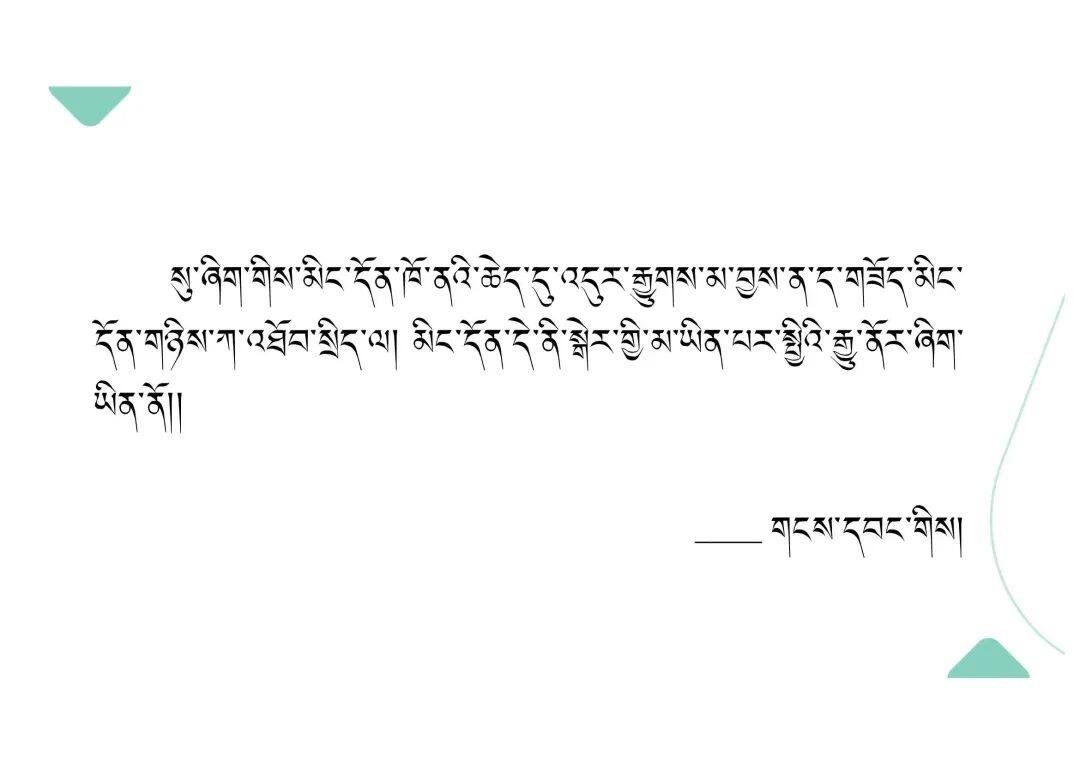 སུ་ཞིག་གིས་མིང་དོན་ཁོ་ནའི་ཆེད་དུ་འདུར་རྒྱུགས་མ་བྱས་ན་ད་གཟོད་མིང་
དོན་གཉིས་ཀ་འཐོབ་སྲིད་ལ། མིང་དོན་དེ་ནི་སྒེར་གྱི་མ་ཡིན་པར་སྤྱིའི་རྒྱུ་ནོར་ཞིག་
ཡིན་ནོ།།
____ གངས་དབང་གིས།